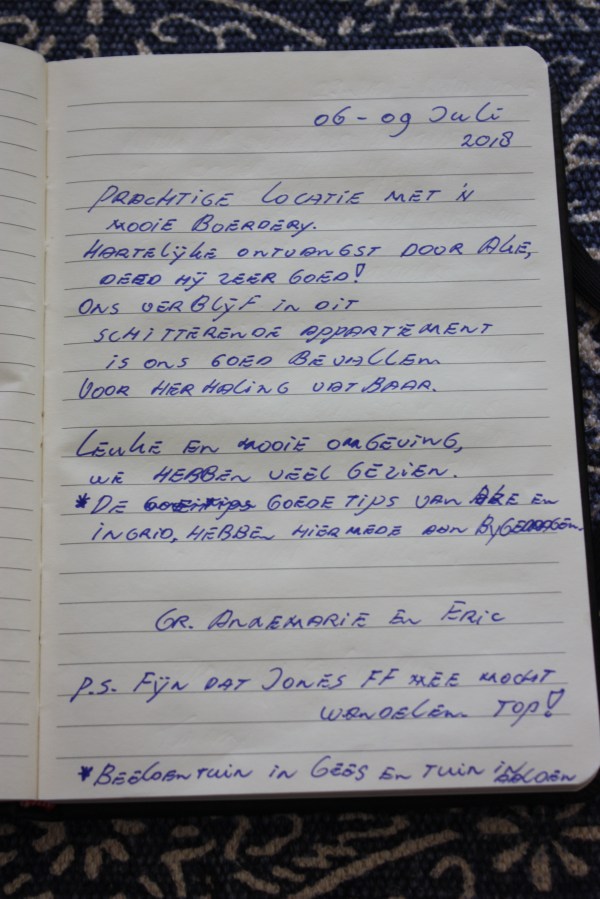 06 - 09 Juli
2018
PRACHTIGE LOCATIE MET 'N
MOOIE BOERDERY.
HARTELIJKE ONTVANGST DOOR AKE,
DEED HIJ ZEER GOED!
ONS VERBLIJF IN DIT
SCHITTERENDE APPARTEMENT
IS ONS GOED BEVALLEN.
VOOR HERHALING VATBAAR.
LEUKE EN MOOIE OMGEVING,
WE HEBBEN VEEL GEZIEN.
*DE GOEDE TIPS VAN AKE EN
INGRID, HEBBEN HIERMEDE AAN BYGEDRAGEN.
GR. ANNEMARIE EN ERIC
P.S. FIJN DAT JONES FF MEE MOCHT
WANDELEN. TOP!
*BEELDENTUIN IN GEES EN TUIN IN